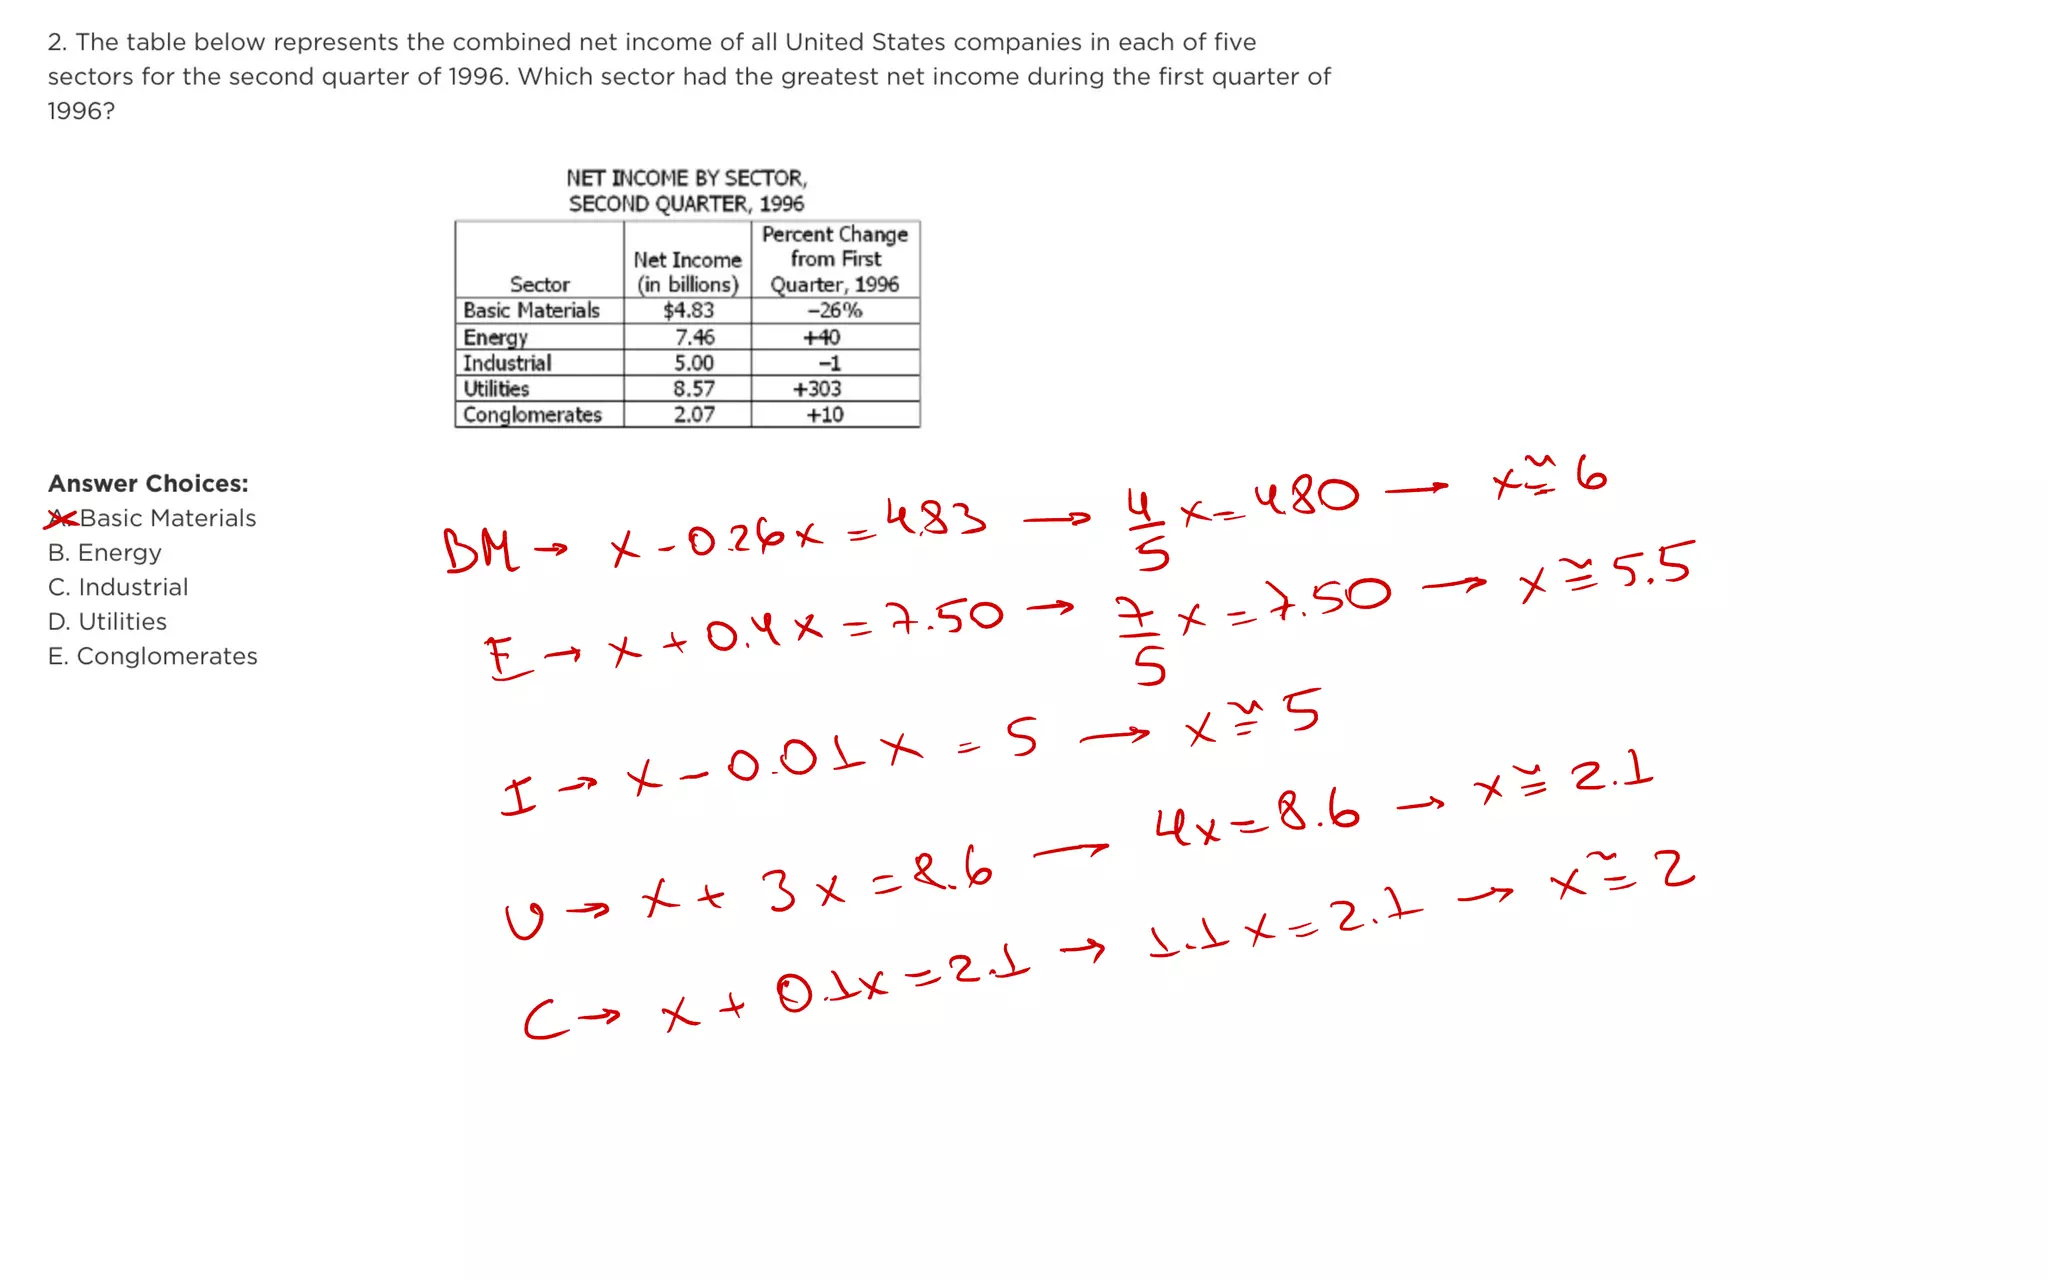 2. The table below represents the combined net income of all United States companies in each of five
sectors for the second quarter of 1996. Which sector had the greatest net income during the first quarter of
1996?
NET INCOME BY SECTOR,
SECOND QUARTER, 1996
Sector Net Income (in billions) Percent Change from First Quarter, 1996
Basic Materials $4.83 –26%
Energy 7.46 +40
Industrial 5.00 –1
Utilities 8.57 +303
Conglomerates 2.07 +10
Answer Choices:
A. Basic Materials
B. Energy
C. Industrial
D. Utilities
E. Conglomerates
BM → x - 0.26x = 4.83 → 4/5 x = 480 → x ≅ 6
E → x + 0.4x = 7.50 → 7/5 x = 7.50 → x ≅ 5.5
I → x - 0.01x = 5 → x ≅ 5
U → x + 3x = 8.6 → 4x = 8.6 → x ≅ 2.1
C → x + 0.1x = 2.1 → 1.1x = 2.1 → x ≅ 2